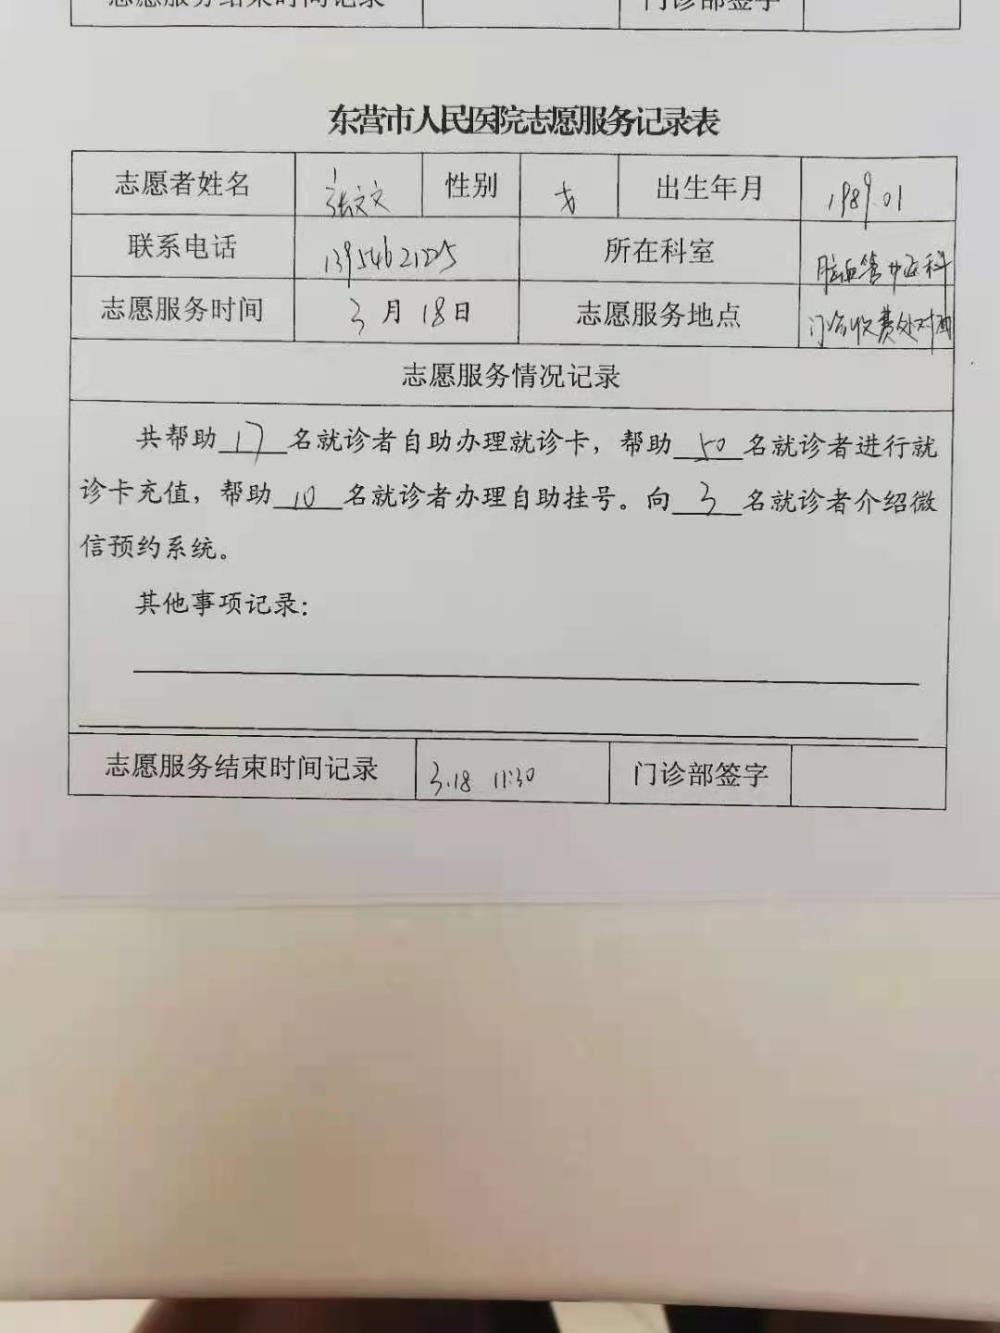 志愿服务结束时间记录 门诊部签字
东营市人民医院志愿服务记录表
志愿者姓名 张文文 性别 女 出生年月 1989.01
联系电话 所在科室
志愿服务时间 3月18日 志愿服务地点 门诊收费处对面
志愿服务情况记录
共帮助17名就诊者自助办理就诊卡，帮助50名就诊者进行就
诊卡充值，帮助10名就诊者办理自助挂号。向3名就诊者介绍微
信预约系统。
其他事项记录：
志愿服务结束时间记录 3.18 11:30 门诊部签字